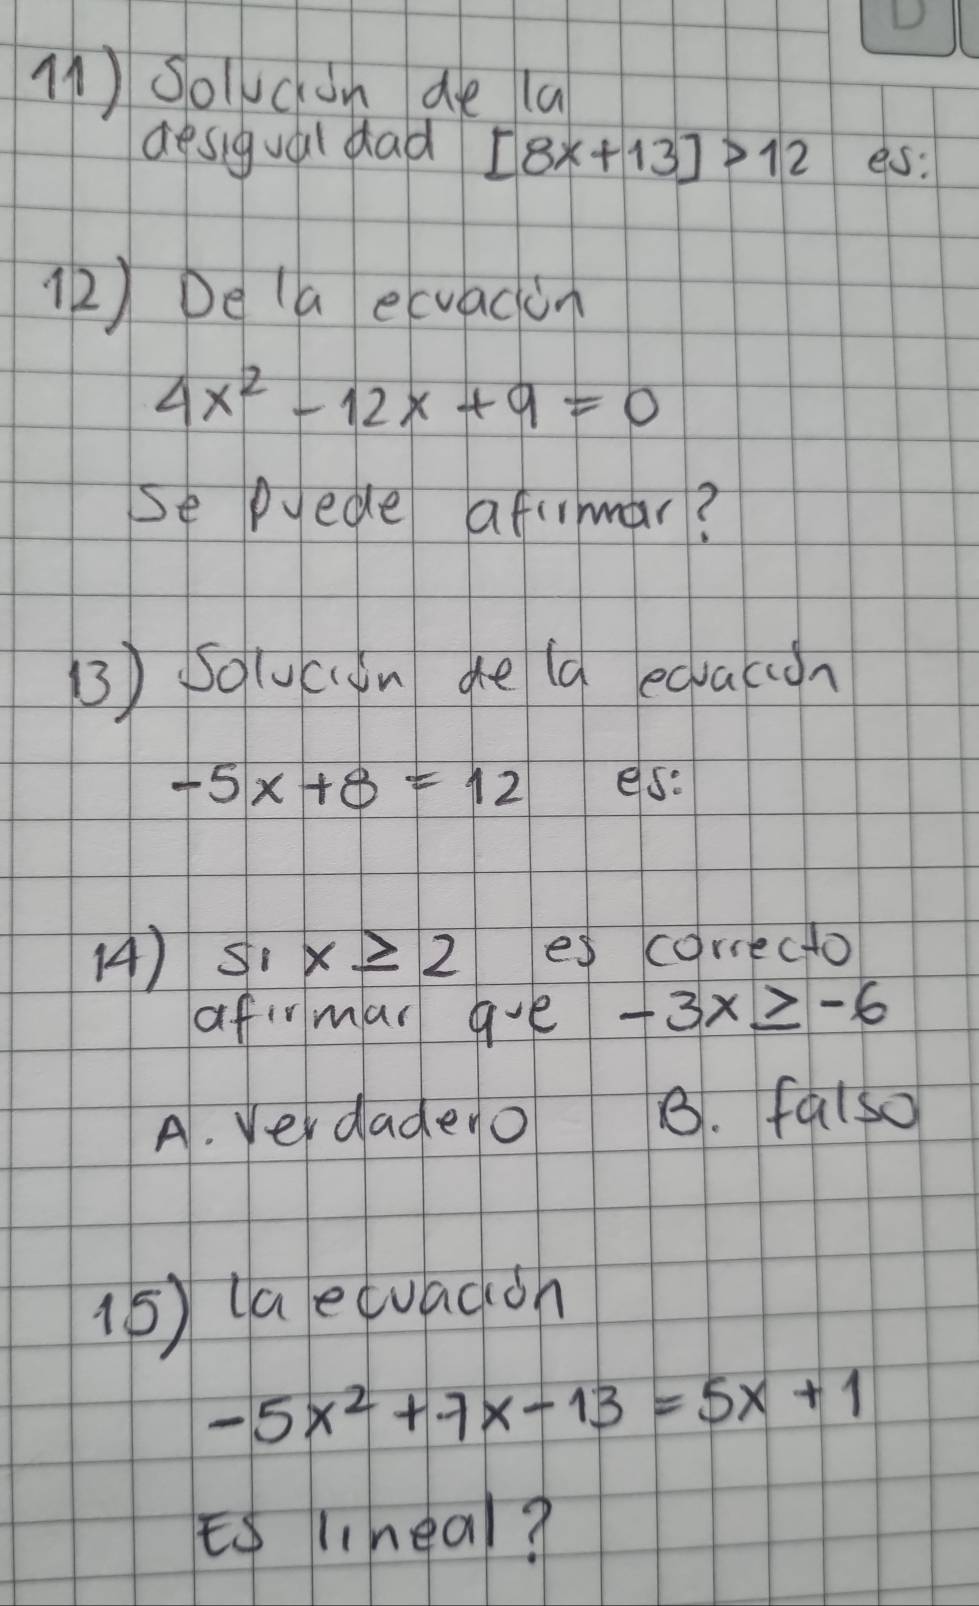 D
11) Solución de la
desigualdad [8x+13] > 12 es:
12) De la ecuación
4x² - 12x + 9 = 0
Se Puede afirmar?
13) Solución de la ecuación
-5x + 8 = 12 es:
14) Si x ≥ 2 es correcto
afirmar que -3x ≥ -6
A. Verdadero B. falso
15) la ecuación
-5x² + 7x - 13 = 5x + 1
Es lineal?